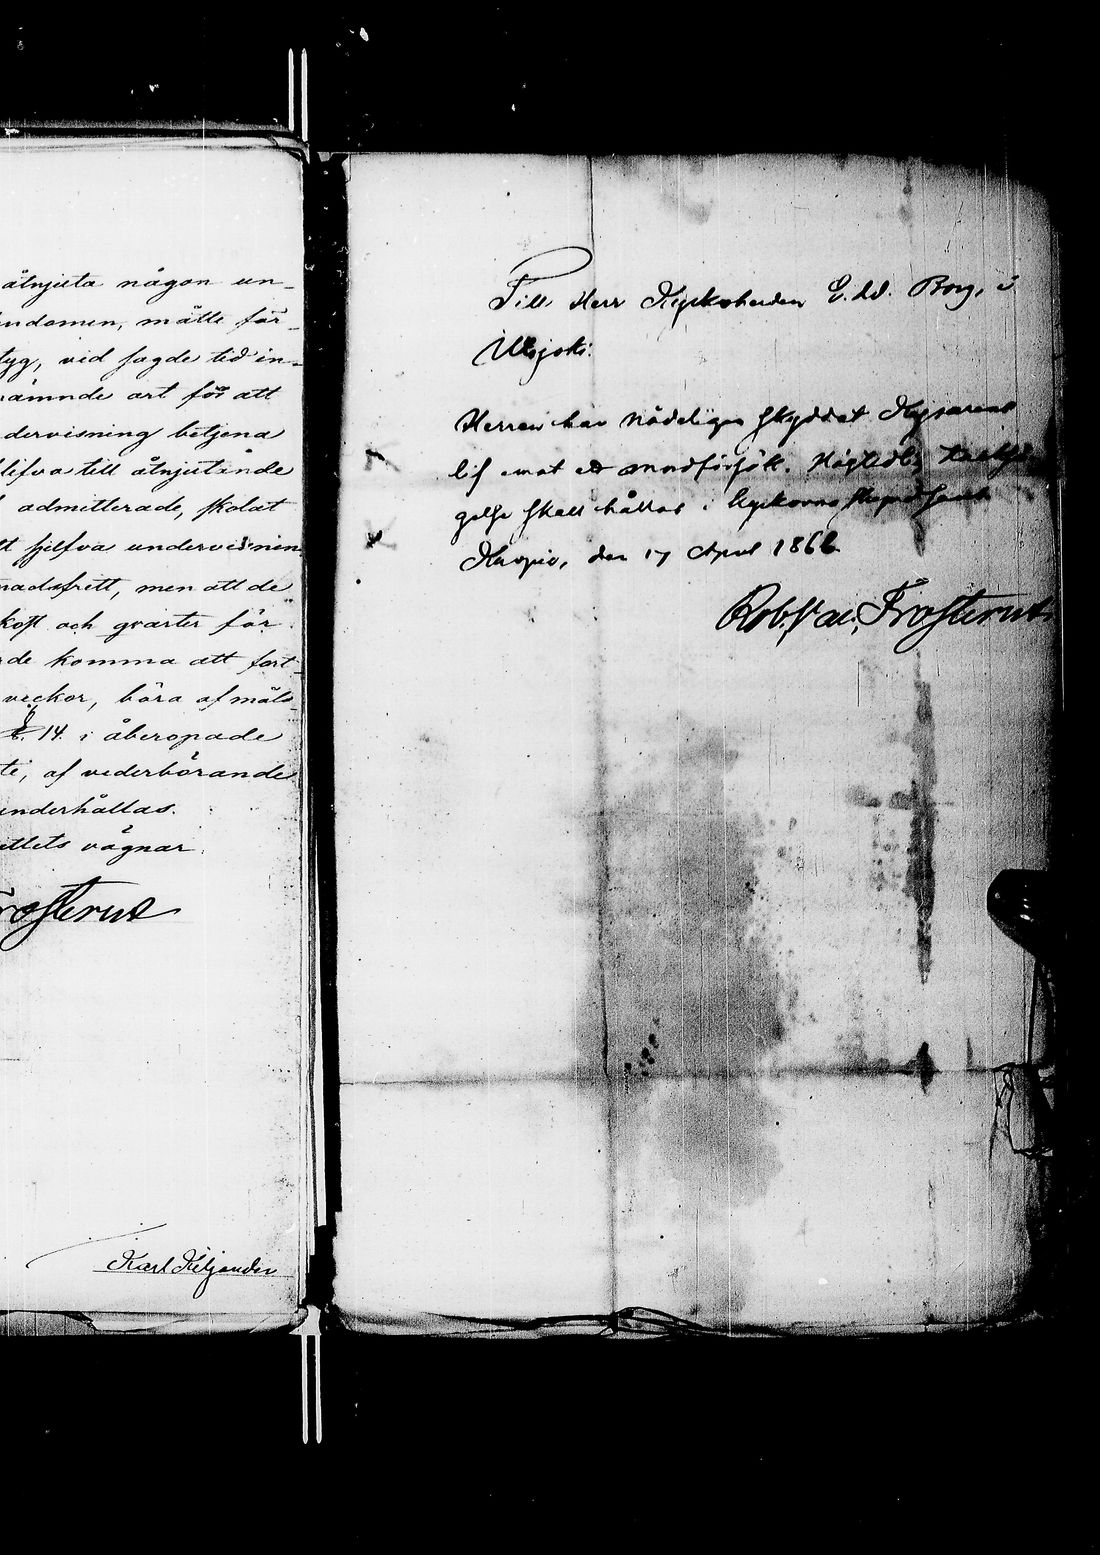 åtnjuta någon un-
endomen, måtte för-
tyg, vid sagde tid in-
nämnde art för att
dervisning betjena
blifva till åtnjutande
admitterade, skolat
tt sjelfva undervisnin
nadsfritt, men att de
kost och qvarter för
rde komma att fort-
veckor, böra af måls-
§. 14. i åberopade
te, af vederbörande
underhållas.
ettets vägnar.
Frosterus
Karl Kiljander
Till Herr Kyrkoherden E. W. Borg, i
Utsjoki.
Herren har nådeligen skyddat Kejsarens
lif emot ett mordförsök. Högtidlig tacksä-
gelse skall hållas i Kyrkorna
Kuopio, den 17 April 1866
Rob. Val. Frosterus.